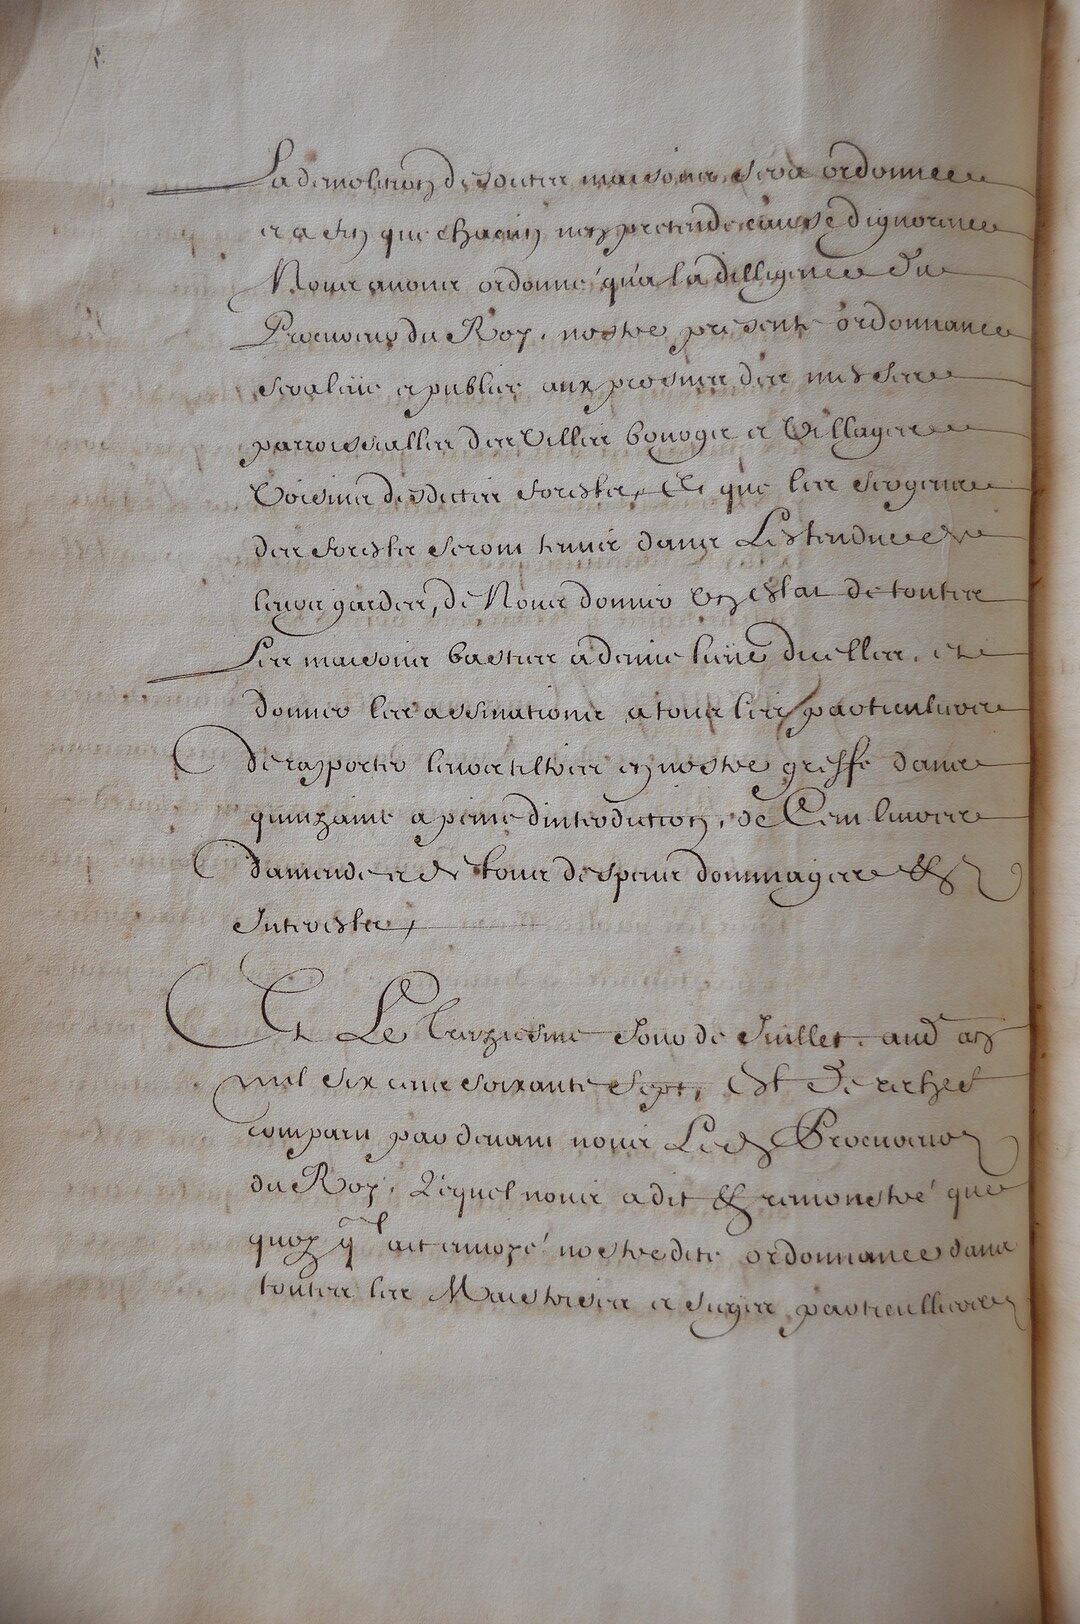 La demolition desdites maisons sera ordonnee
et a fin que chacun n'en pretende cause d'ignorance
Nous avons ordonné qu'a la dilligence du
Procureur du Roy, nostre presente ordonnance
sera leüe et publiée aux prosnes des messes
parroissialles des Villes bourgs et Villages
Voisins desdictes forests, Et que les sergens
des forests seront tenus dans L'estendue de
leurs gardes, de Nous donner un estat de toutes
Les maisons basties a demie lieüe d'icelles, et
donner les assinations a tous les particuliers
de rapporter leurs tiltres en nostre greffe dans
quinzaine a peine d'interdiction, de Cent livres
d'amende et de tous despens dommages &
Interests,
Et Le treiziesme Jour de Juillet, aud an
mil six cens soixante sept, est derechef
comparu par devant nous Led Procureur
du Roy, Lequel nous a dit & remonstré que
quoy q'l ait envoyé nostredite ordonnance dans
toutes les Maistrises et sieges particulliers